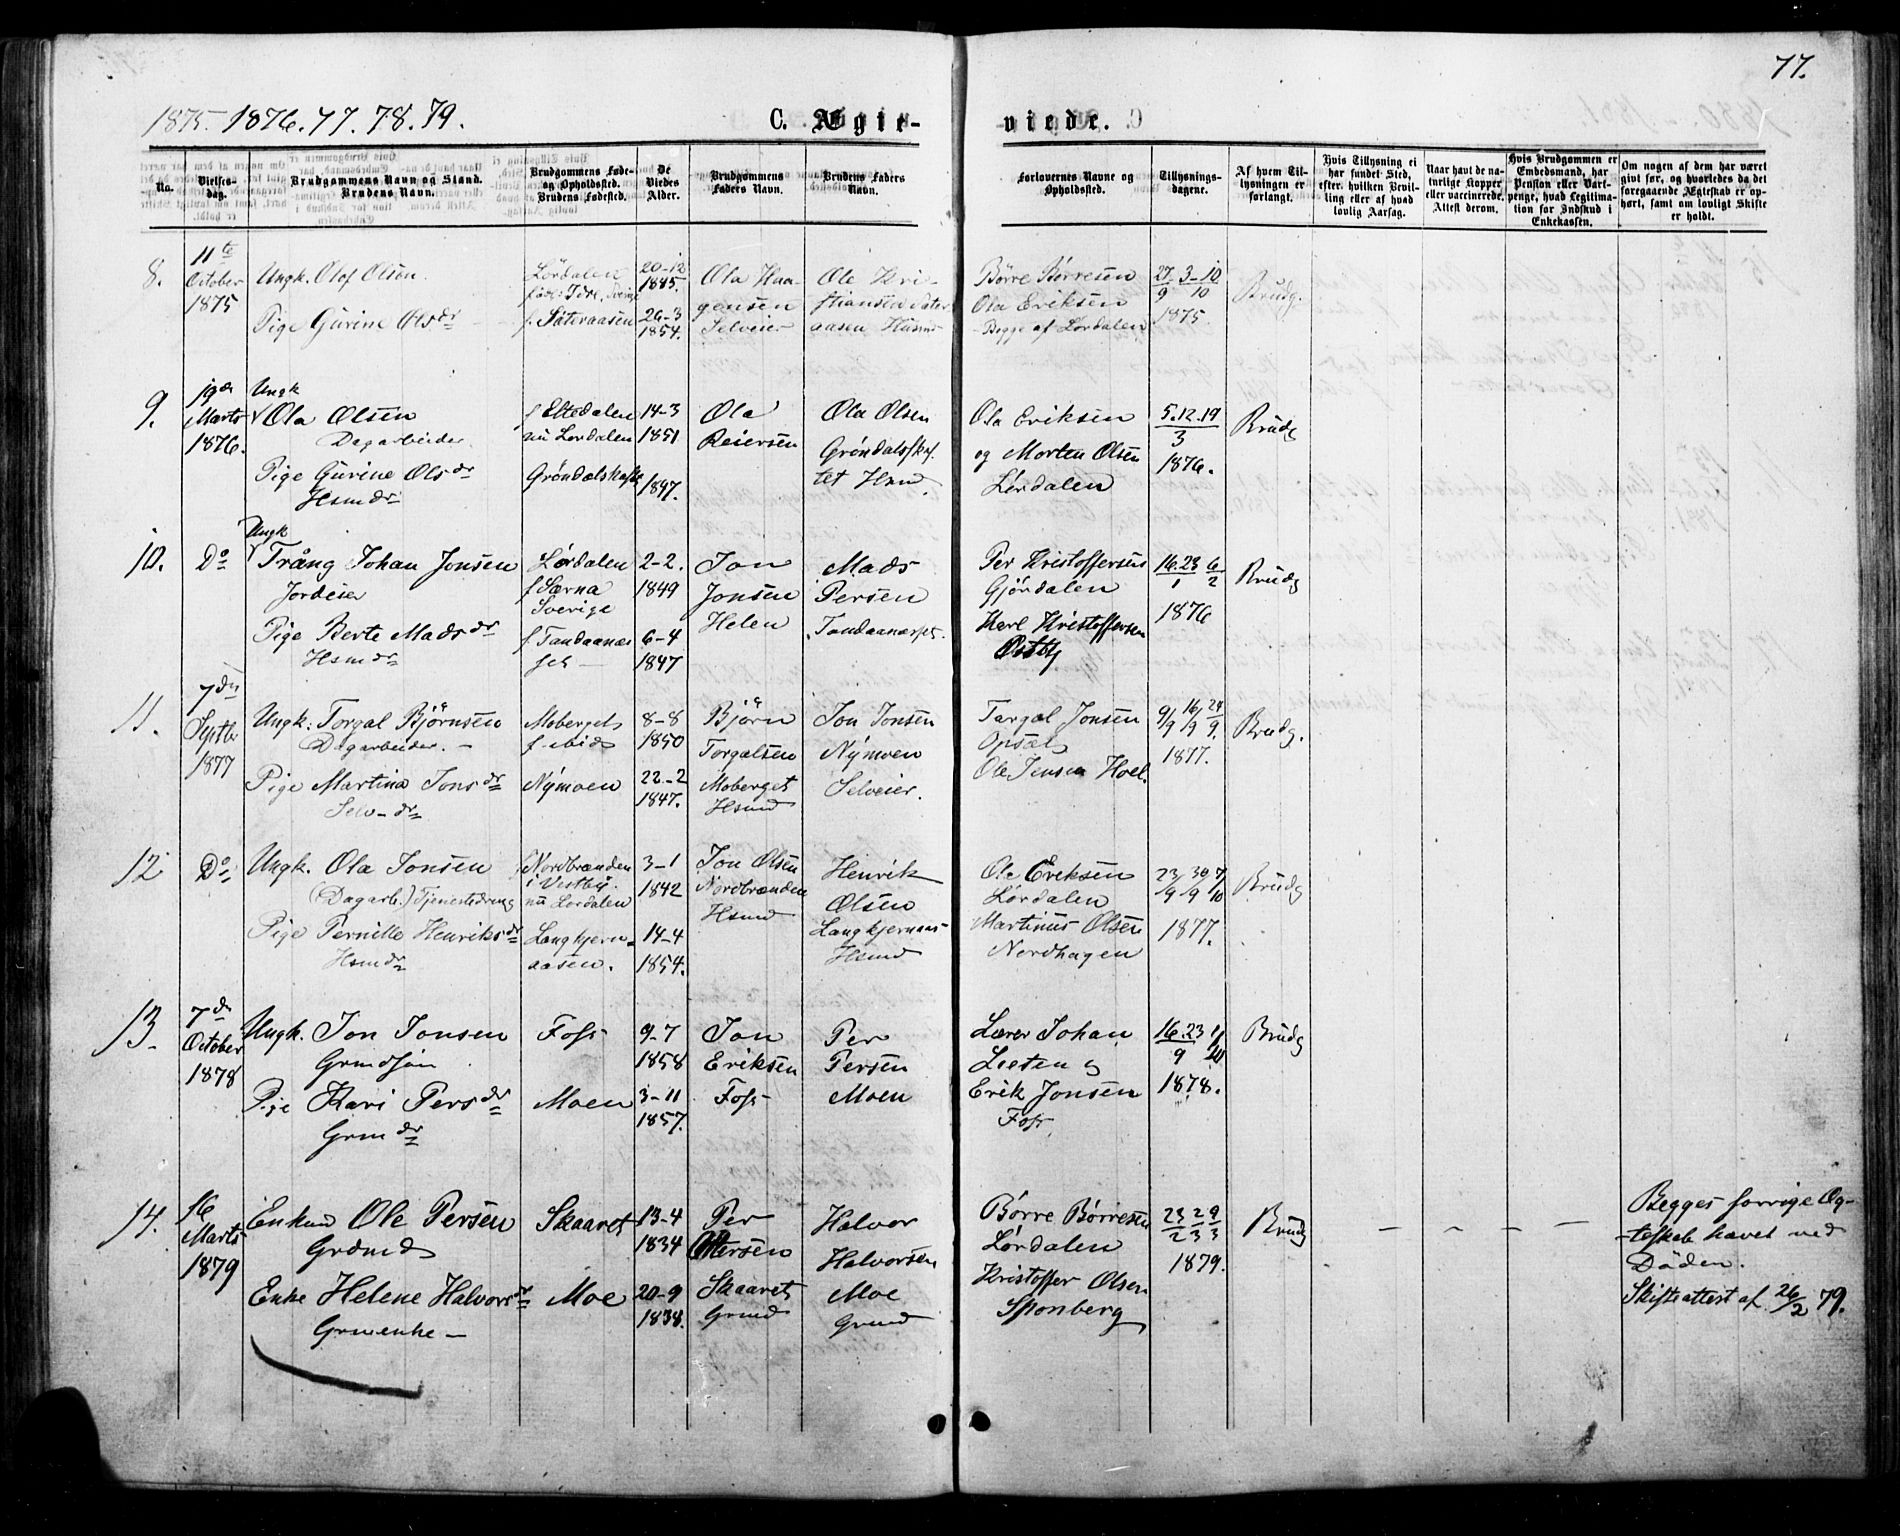 77.
1875. 1876. 77. 78. 79.
C. Ægte-
viede.
No.
Vielses-
dag.
Brudgommens Navn og Stand.
Brudens Navn.
Brudgommens Føde-
og Opholdsted.
Brudens Fødested.
De
Viedes
Alder.
Brudgommens
Faders Navn.
Brudens Faders
Navn.
Forlovernes Navne og
Opholdssted.
Tillysnings-
dagene.
Af hvem Til-
lysningen er
forlangt.
Hvis Tillysning ei
har fundet Sted,
efter hvilken Bevil-
ling eller af hvad
lovlig Aarsag.
Naar havt de na-
turlige Kopper
eller vaccinerede.
Attest derom.
Hvis Brudgommen er
Embedsmand, har
Pension eller Vart-
penge, hvad Legitima-
tion for Indskud i
Enkekassen.
Om nogen af dem har været
gift før, og hvorledes da det
foregaaende Ægteskab er op-
hørt, samt om lovligt Skifte
er holdt.
8.
11te
October
1875
Ungk. Olof Olsen.
Pige Gurine Olsdr
Lördalen
föd: Idre, Sverige
f. Säteraasen
20-12
1845.
26-3
1854.
Ola Haa-
gensen
Selveier
Ole Kri-
stiansen Säter
aasen Husm
Börre Börresen
Ola Eriksen
Begge af Lördalen
27/9 3-10/10
1875.
Brudg.
9.
19de
Marts
1876.
Ungk
Ola Olsen
Dagarbeider
Pige Gurine Olsdr
Hsmdr
f Eltedalen
nu Lordalen
Gröndalskaftet
14-3
1851
1847.
Ola
Reiersen
Ola Olsen
Gröndalskaf-
tet Hsmd.
Ola Eriksen
og Morten Olsen
Lördalen
5.12.19/3
1876.
Brudg
10.
Do
Ungk
Trång Johan Jonsen
Jordeier
Pige Berte Madsdr
Hsmdr
Lördalen
f Særna
Sverige
f. Tandaanæs-
set -
2-2.
1849
6-4
1847
Jon
Jonsen
Helen
Mads
Persen
Tandaanæset.
Per Kristoffersen
Gjördalen
Karl Kristoffersen
Ostby
16.23/1 6/2
1876
Brudg
11.
7de
Septbr
1877
Ungk: Torgal Björnsen
Dagarbeider. -
Pige Martina Jonsdr
Selv-dr
Moberget
f. ibid
Nymoen
8-8
1850
22-2
1847.
Björn
Torgalsen
Moberget
Hsmd
Jon Jonsen
Nymoen
Selveier.
Targal Jonsen
Opsal
Ole Jensen Hoel.
9/9 16/9 24/9.
1877.
Brudg.
12
Do
Ungk. Ola Jonsen
(Dagarb.) Tjenestedreng
Pige Pernille Henriksdr
Hsmdr
Nordbrænden
i Vestby.
nu Lordalen
Langkjern-
aasen.
3-1
1842
14-4
1854.
Jon Olsen
Nordbrænden
Hsmd
Henrik
Olsen
Langkjernaas-
Hsmd
Ole Eriksen
Lördalen
Martinus Olsen
Nordhagen
23/9 30/9 7/10
1877.
Brudg
13.
7de
October
1878
Ungk. Jon Jonsen
Grmdsön
Pige Kari Persdr
Grmdr
Foss
Moen
9-7
1858
3-11
1857.
Jon
Eriksen
Foss
Per
Persen
Moen
Lærer Johan
Leeten og
Erik Jonsen
Foss
16.23/9 1/10
1878.
Brudg
14.
16
Marts
1879
Enkmd Ole Persen
Grdmd
Enke Helene Halvorsdr
Grmenke -
Skaaret
Moe
13-4
1834
20-9
1838.
Per
Ottersen
Skaaret
Grmd
Halvor
Halvorsen
Moe
Grmd
Börre Börresen
Lördalen
Kristoffer Olsen
Sponberg
23/2 2/3 9/3
1879.
Brudg
- - - -
Begges forrige Æg-
-teskab hævet ved
Döden.
Skifteattest af 26/2 79.